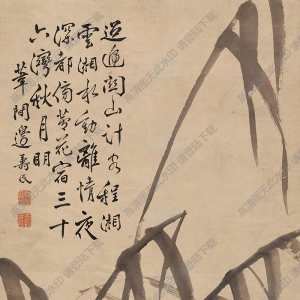 迢遞關山計客程湘
雲湘水動離情夜
深都傍蘆花宿三十
六灣秋月明
葦間邊壽民